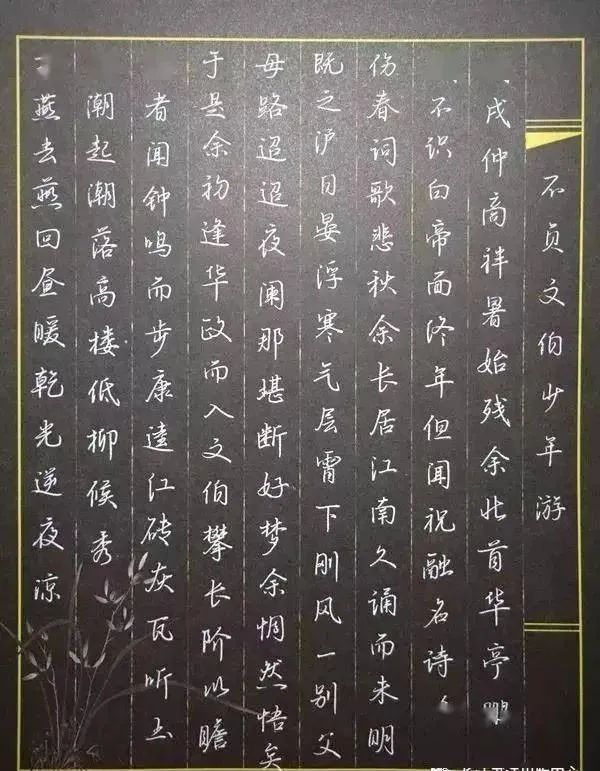 不贞文伯少年游
戌仲商祥暑始残余北首华亭
不识白帝面终年但闻祝融名诗
伤春词歌悲秋余长居江南久诵而未明
既之沪日晏浮寒气层霄下刚风一别父
母路迢迢夜阑那堪断好梦余惘然悟矣
于是余初逢华政而入文伯攀长阶以瞻
者闻钟鸣而步康逵红砖灰瓦听土
潮起潮落高楼低柳候秀
燕去燕回昼暖乾光逆夜凉